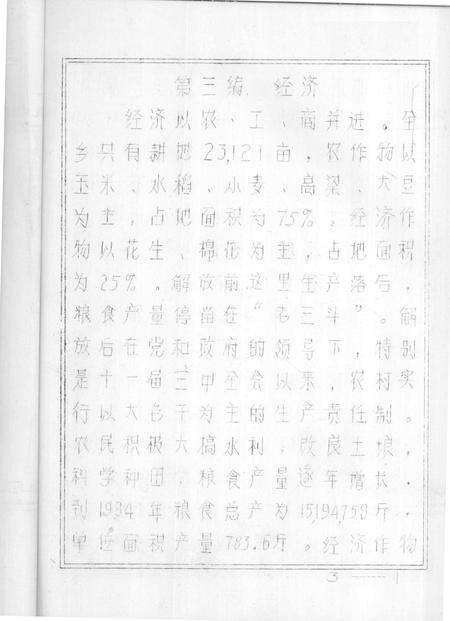 第三编 经济
经济以农、工、商并进。全
乡共有耕地23,121亩,农作物以
玉米、水稻、小麦、高粱、大豆
为主,占地面积为75%。经济作
物以花生、棉花为主,占地面积
为25%。解放前这里生产落后,
粮食产量停留在“老三斗”。解
放后在党和政府的领导下,特别
是十一届三中全会以来,农村实
行以大包干为主的生产责任制。
农民积极大搞水利,改良土壤,
科学种田,粮食产量逐年增长,
到1984年粮食总产为15,194,758斤,
单位面积产量783.6斤。经济作物
3——1